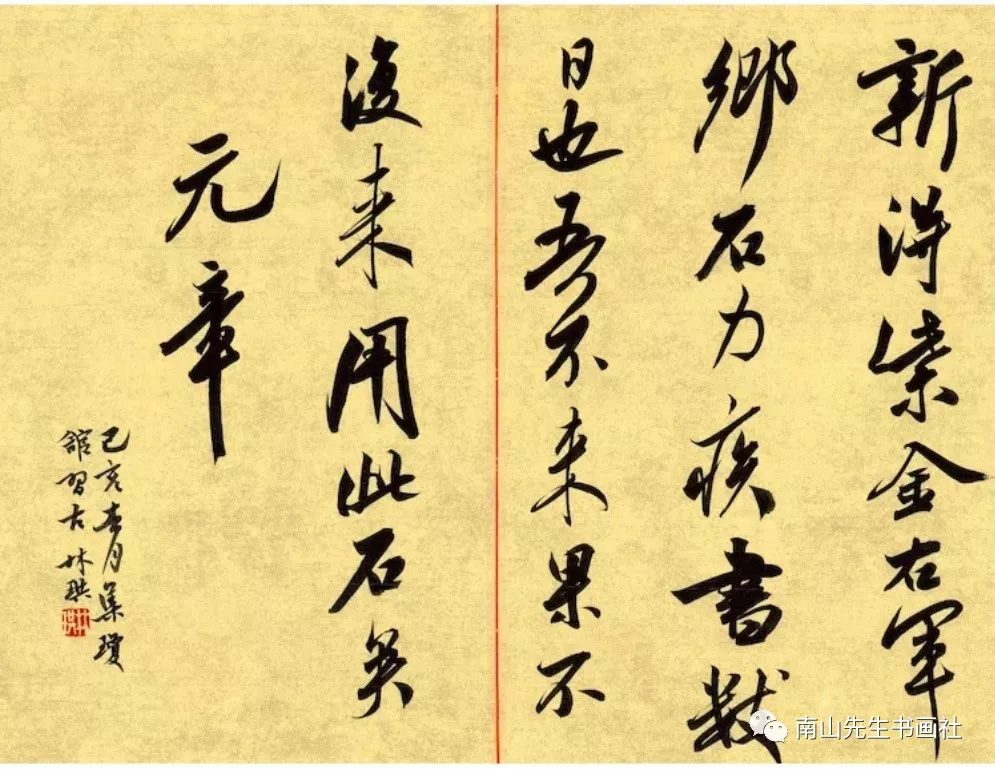 新得紫金右軍
鄉石力疾書數
日也吾不来果不
復来用此石矣
元章
己亥春月集瓊
館習古林琪
南山先生书画社